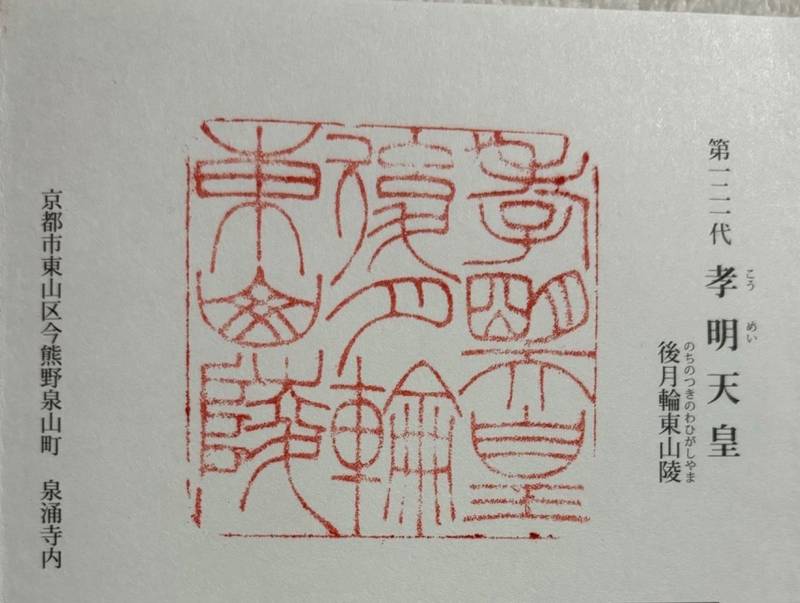 第一二一代 孝明天皇
こうめい
後月輪東山陵
のちのつきのわひがしやま
孝明天皇
後月輪
東山陵
京都市東山区今熊野泉山町 泉涌寺内